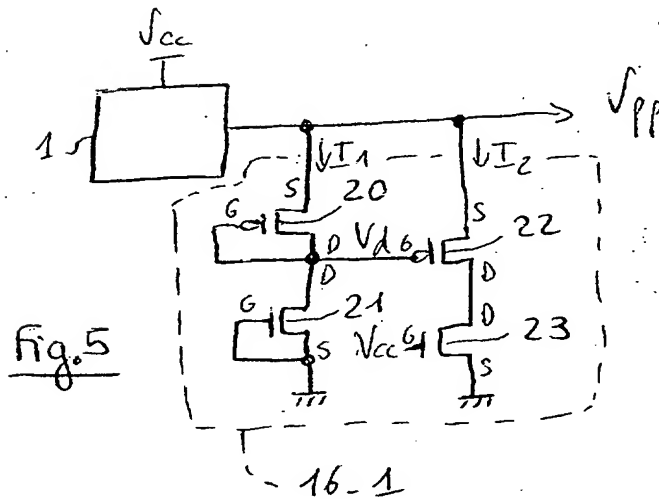 Vcc
1
Vpp
I1
I2
S
20
G
D
Vd
G
S
22
D
D
G
21
S
Vcc
G
D
23
S
Fig.5
16_1